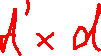 d' × d